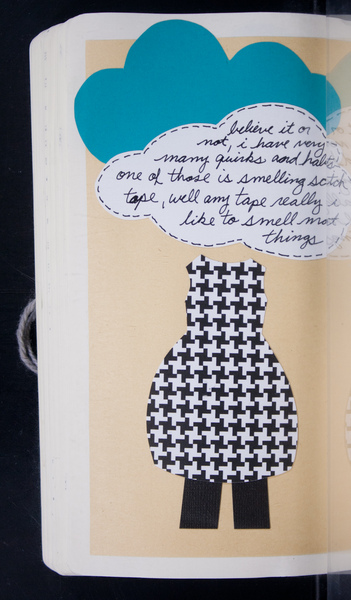 believe it or
not, i have very
many quirks and habits
one of those is smelling scotch
tape, well any tape really i
like to smell most
things